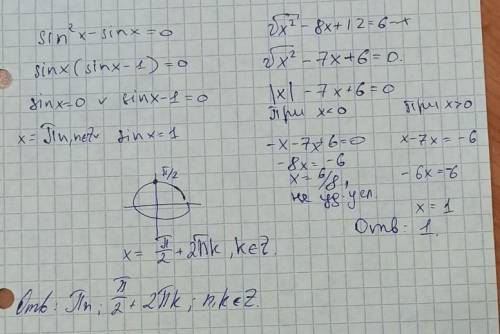 sin²x - sinx = 0
sinx(sinx - 1) = 0
sinx = 0 ∨ sinx - 1 = 0
x = πn, n∈Z ∨ sinx = 1
π/2
x = π/2 + 2πk, k∈Z.
Отв: πn; π/2 + 2πk; n, k∈Z.
√x² - 8x + 12 = 6 - x
√x² - 7x + 6 = 0.
|x| - 7x + 6 = 0
При x<0
-x - 7x + 6 = 0
-8x = -6
x = 6/8,
не уд. усл.
При x>0
x - 7x = -6
-6x = -6
x = 1
Отв: 1.